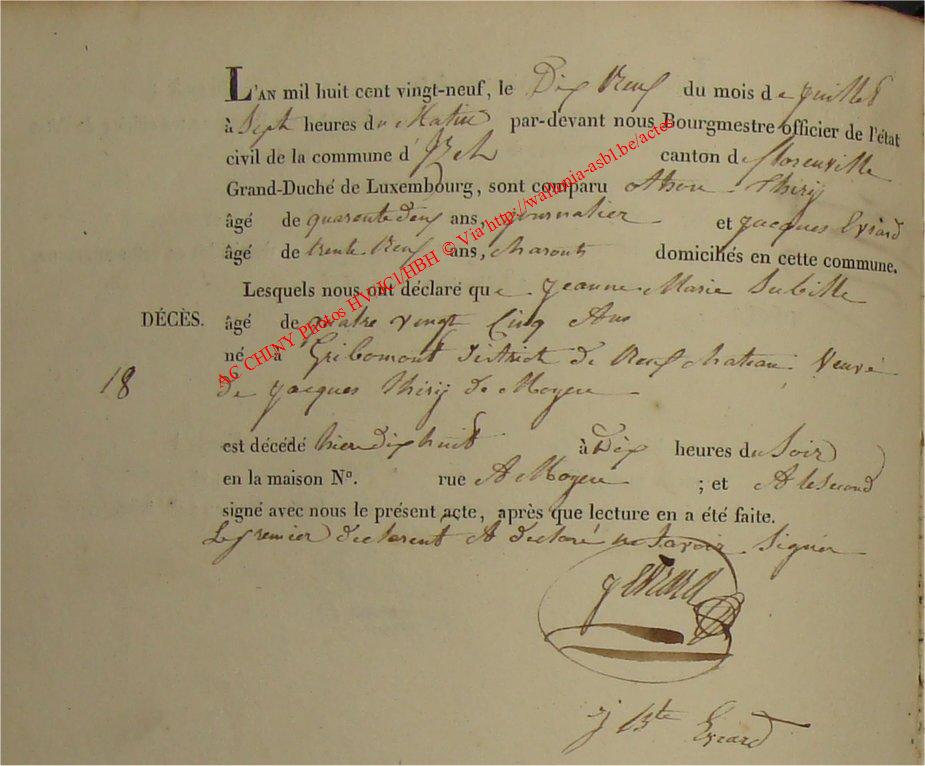 L'AN mil huit cent vingt-neuf, le Dix Neuf du mois de juillet
à Sept heures du Matin par-devant nous Bourgmestre officier de l'état
civil de la commune d'Izel canton de florenville
Grand-Duché de Luxembourg, sont comparu Thirÿ
âgé de quarente deux ans, journalier et jacques Evrard
âgé de trente Neuf ans, charont domiciliés en cette commune.
Lesquels nous ont déclaré que jeanne Marie Subille
DÉCÈS. âgé de quatre vingt Cinq Ans
né à Gribomont district de Neufchateau Veuve
18 de jacques thirÿ de Moyen
est décédé hier dix huit à Dix heures du Soir
en la maison N°. rue A Moyen ; et A le Second
signé avec nous le présent acte, après que lecture en a été faite.
Le premier declarent A declaré ne Savoir Signer
j Evrard
j Bte Evrard
AC CHINY Photos HV-JCl/HBH © Via http://wallonia-asbl.be/actes